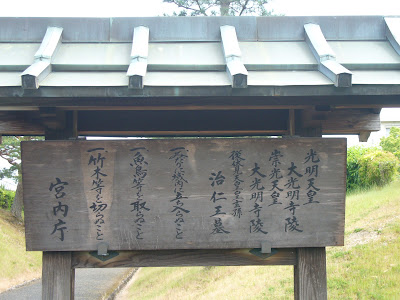 光明天皇
大光明寺陵
崇光天皇
大光明寺陵
後伏見天皇玄孫
治仁王墓
一みだりに域内に立入らぬこと
一魚鳥等を取らぬこと
一竹木等を切らぬこと
宮内庁